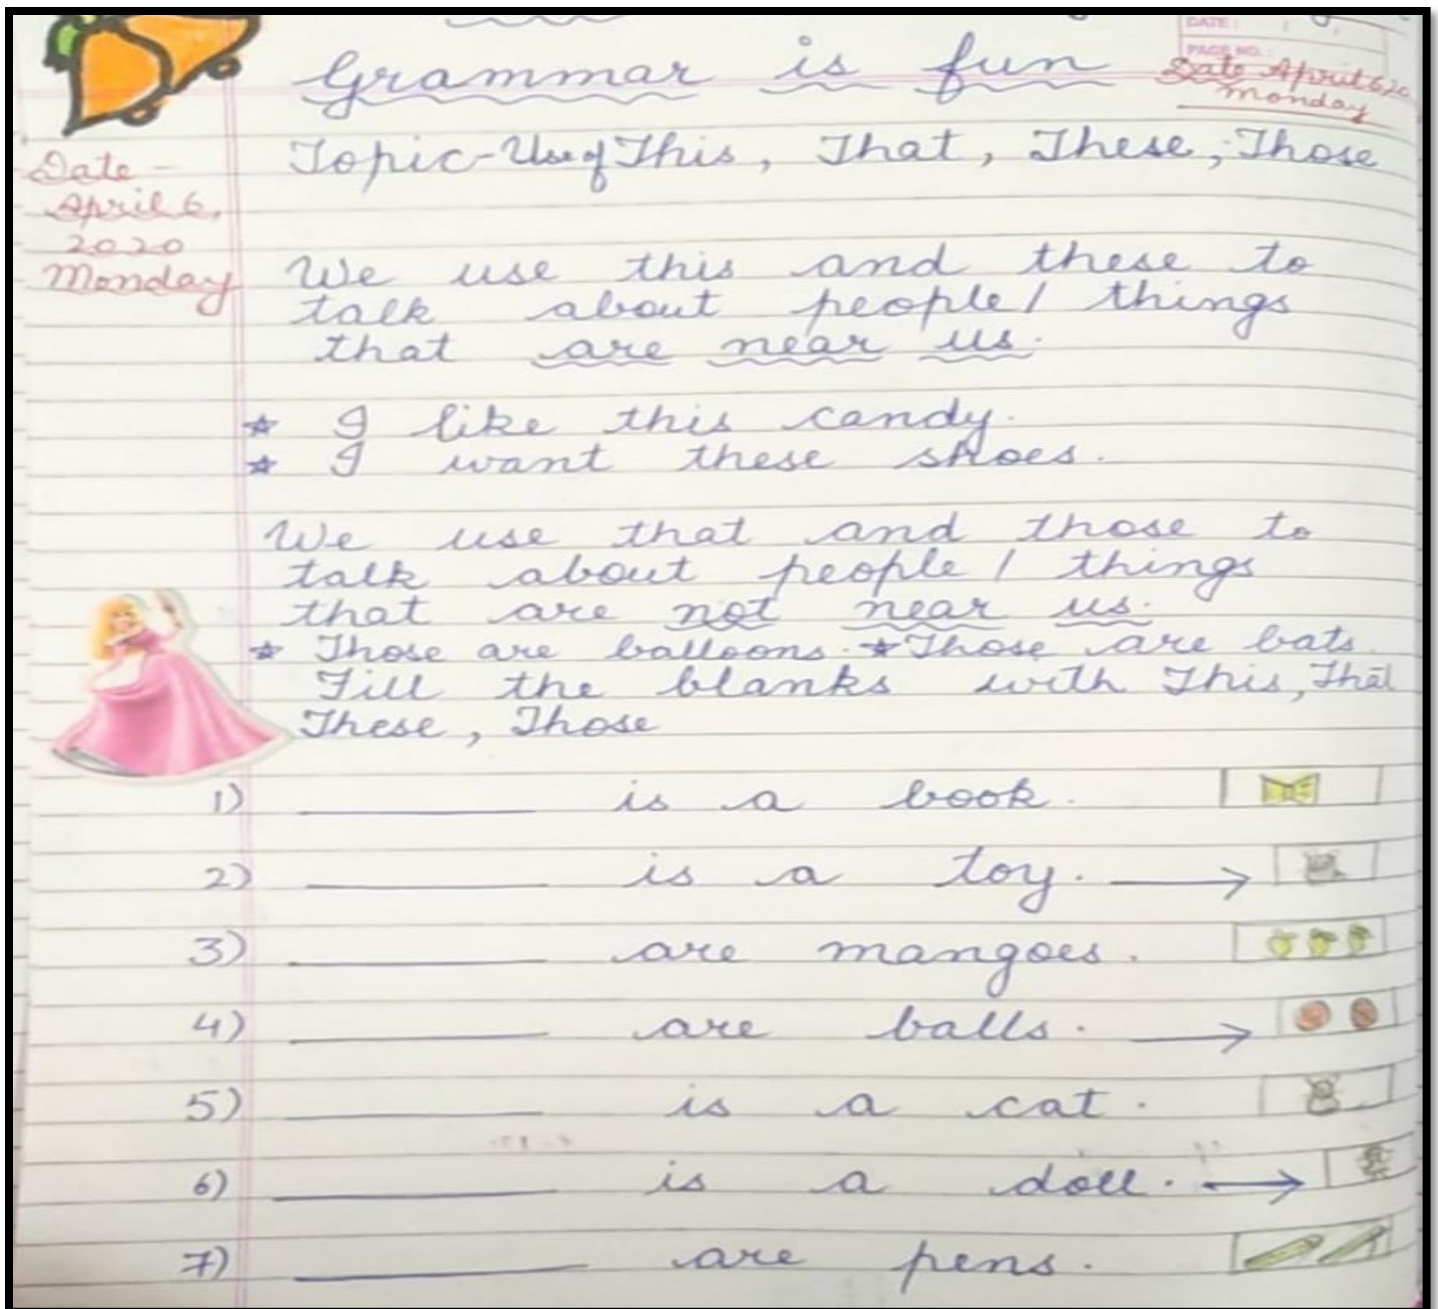 DATE:
PAGE NO.:
Grammar is fun
Date April 6, 20
Monday
Topic - Use of This, That, These, Those
Date -
April 6,
2020
Monday
We use this and these to
talk about people / things
that are near us.
I like this candy.
I want these shoes.
We use that and those to
talk about people / things
that are not near us.
Those are balloons. Those are bats.
Fill the blanks with This, That
These, Those
1) is a book.
2) is a toy.
3) are mangoes.
4) are balls.
5) is a cat.
6) is a doll.
7) are pens.